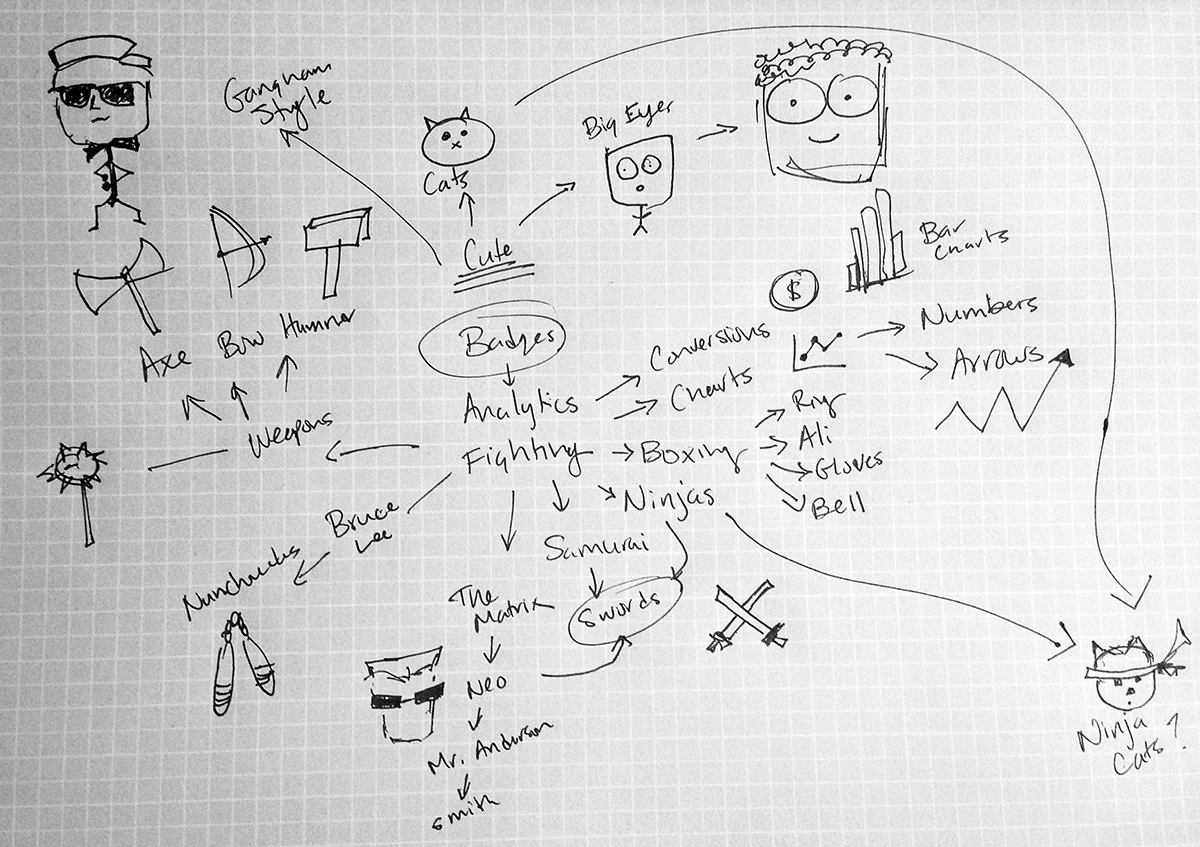 Gangnam
Style
Cats
Big Eyes
Cute
Bar
Charts
$
Axe
Bow
Hammer
Badges
Conversions
Numbers
Charts
Arrows
Analytics
Weapons
Fighting
Boxing
Ring
Ali
Gloves
Bell
Ninjas
Bruce
Lee
Samurai
Nunchucks
The
Matrix
Swords
Neo
Mr. Anderson
Smith
Ninja
Cats?